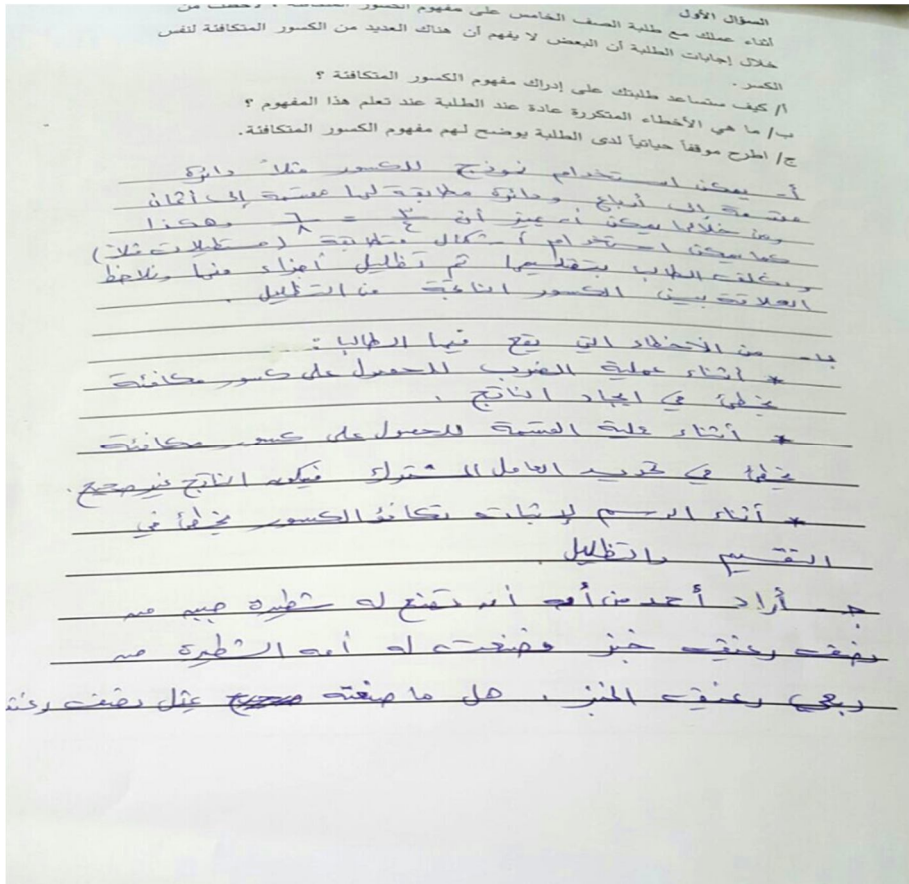 السؤال الأول
أثناء عملك مع طلبة الصف الخامس على مفهوم الكسور المتكافئة ، لاحظت من
خلال إجابات الطلبة أن البعض لا يفهم أن هناك العديد من الكسور المتكافئة لنفس
الكسر .
أ/ كيف ستساعد طلبتك على إدراك مفهوم الكسور المتكافئة ؟
ب/ ما هي الأخطاء المتكررة عادة عند الطلبة عند تعلم هذا المفهوم ؟
ج/ اطرح موقفاً حياتياً لدى الطلبة يوضح لهم مفهوم الكسور المتكافئة.
أ- يمكن استخدام نموذج للكسور مثلاً دائرة
مقسمة إلى أرباع ودائرة مطابقة لها مقسمة إلى أثمان
ومن خلالها يمكن أن يميز أن ٣/٤ = ٦/٨ وهكذا
كما يمكن استخدام أشكال متطابقة (مستطيلات مثلاً)
ويكلف الطالب بتقسيمها ثم تظليل أجزاء منها ونلاحظ
العلاقة بين الكسور الناتجة من التظليل .
ب- من الأخطاء التي يقع فيها الطالب :
* أثناء عملية الضرب للحصول على كسور مكافئة
يخطئ في ايجاد الناتج .
* أثناء عملية القسمة للحصول على كسور مكافئة
يخطئ في تحديد العامل المشترك فيكون الناتج غير صحيح .
* أثناء الرسم لإثبات تكافؤ الكسور يخطئ في
التقسيم والتظليل .
ج- أراد أحمد من أمه أن تصنع له شطيرة جبنه من
نصف رغيف خبز فصنعت له أمه الشطيرة من
ربعي رغيف الخبز . هل ما صنعته يمثل نصف